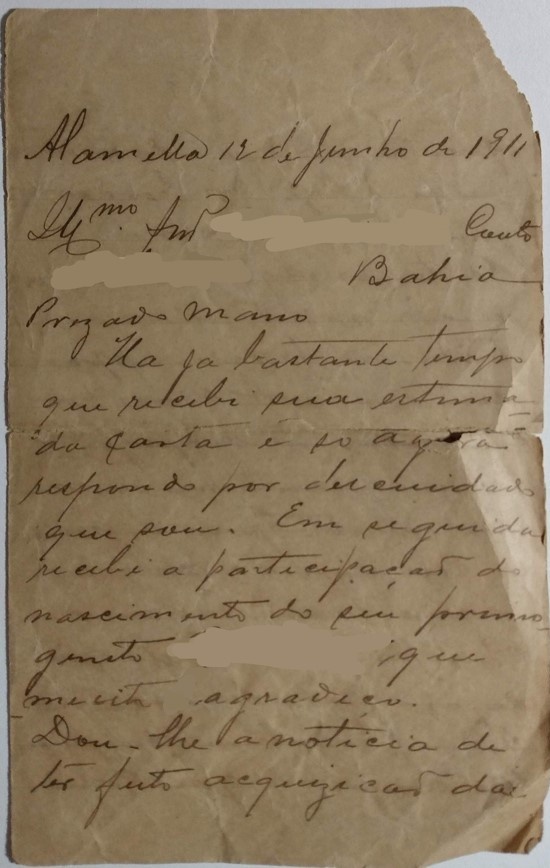 Alamella 12 de Junho de 1911
Illmo. Snr Couto
Bahia
Prezado Mano
Ha ja bastante tempo
que recebi sua estima=
da carta e so agora
respondo por descuidado
que sou. Em seguida
recebi a participação do
nascimento do seu primo-
genito que
muito agradeço.
Dou-lhe a noticia de
ter feito acquizicaõ das